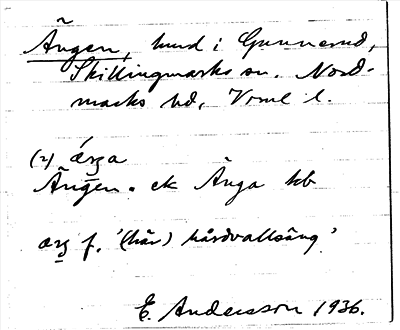 Ängen, hmd i Gunnerud,
Skillingmarks sn. Nord-
marks hd, Vrml l.
(2) äŋa
Ängen. ek Änga kb
æŋ f. '(här) hårdvallsäng'
E. Andersson 1936.